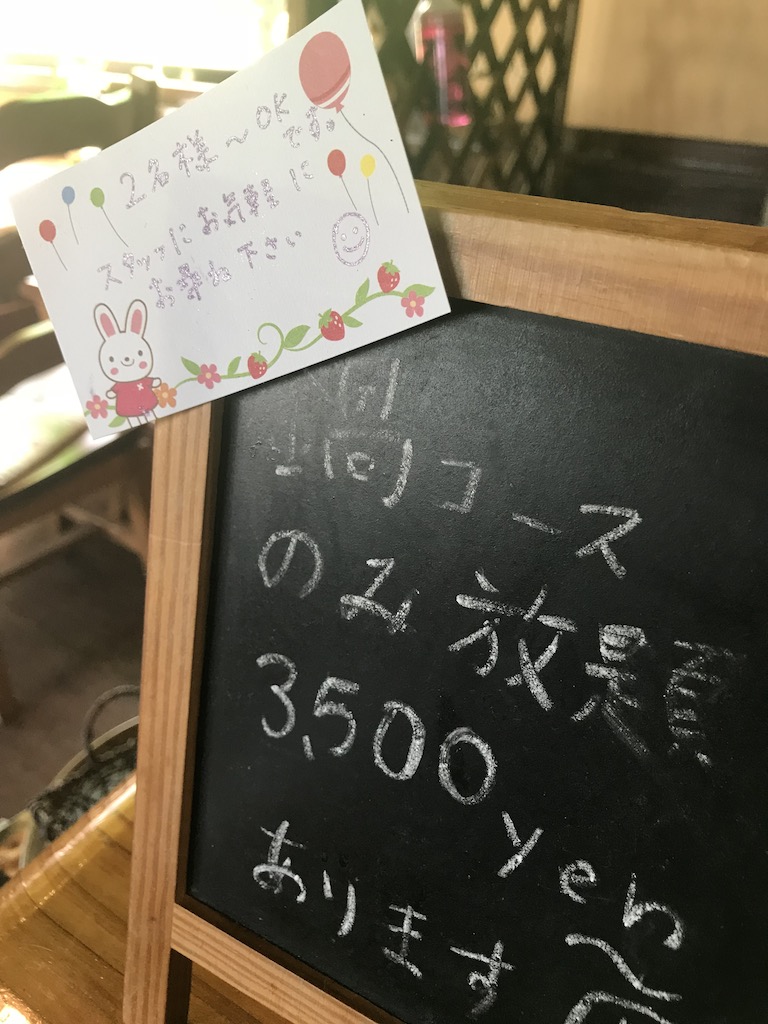 2名様〜OK
です。
スタッフにお気軽に
お尋ね下さい
鍋コース
のみ放題
3,500 yen〜
あります